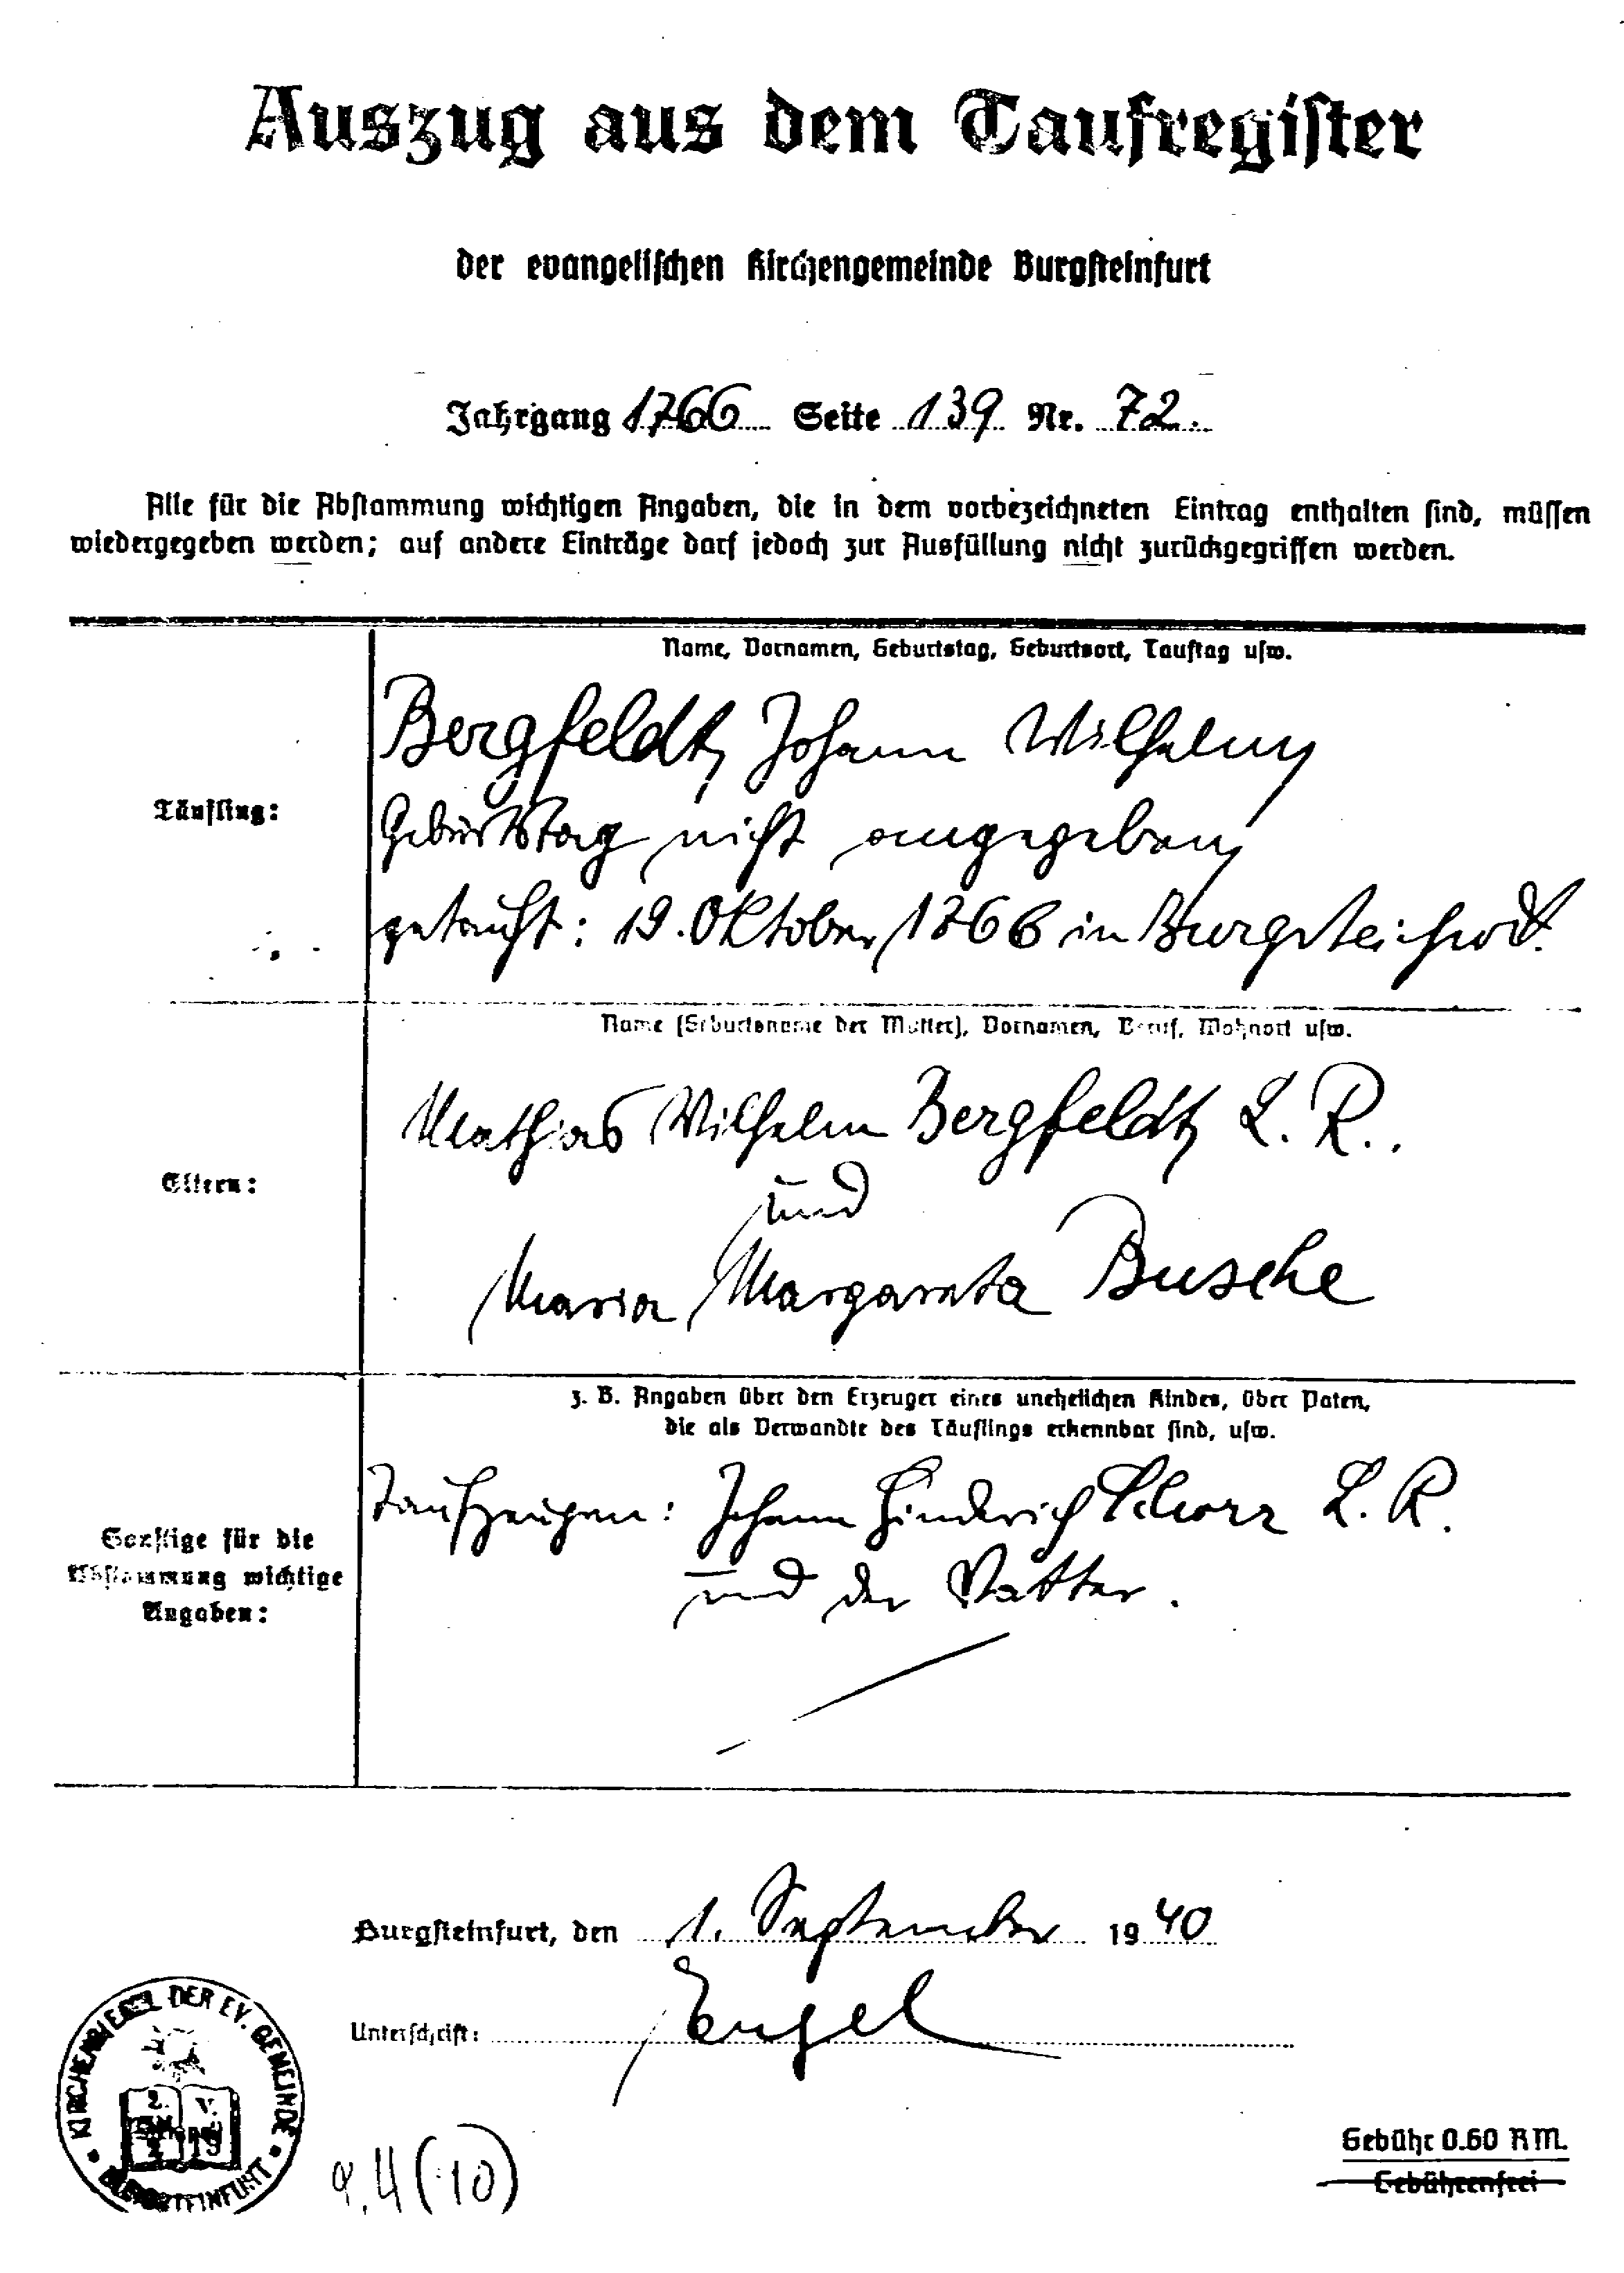 Auszug aus dem Taufregister
der evangelischen Kirchengemeinde Burgsteinfurt
Jahrgang 1766 Seite 139 Nr. 72.
Alle für die Abstammung wichtigen Angaben, die in dem vorbezeichneten Eintrag enthalten sind, müssen
wiedergegeben werden; auf andere Einträge darf jedoch zur Ausfüllung nicht zurückgegriffen werden.
Name, Vornamen, Geburtstag, Geburtsort, Tauftag usw.
Täufling:
Bergfeldt, Johann Wilhelm
Geburtstag nicht angegeben,
getauft: 19. Oktober 1766 in Burgsteinfurt.
Name (Geburtsname der Mutter), Vornamen, Beruf, Wohnort usw.
Eltern:
Mathias Wilhelm Bergfeldt L. R.
und
Maria Margareta Busche
z. B. Angaben über den Erzeuger eines unehelichen Kindes, über Paten,
die als Verwandte des Täuflings erkennbar sind, usw.
Sonstige für die
Abstammung wichtige
Angaben:
Taufzeugen: Johann Hinderich L. R.
und der Vatter.
Burgsteinfurt, den 1. September 1940
Unterschrift: Engel
KIRCHENSIEGEL DER EV. GEMEINDE
BURGSTEINFURT
Gebühr 0.60 RM.
Gebührenfrei
4 (10)